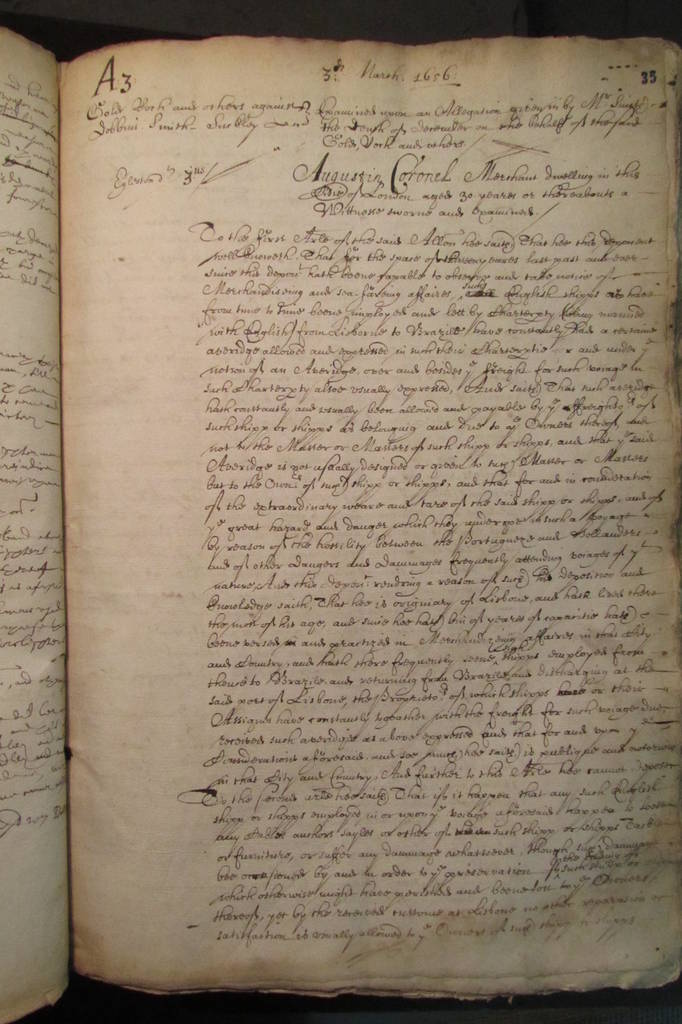 A3:
3.th March. 1656:
35
Gold Bork and others against
Dobbins Smith
Examined upon an Allegation given in by Mr Smith
the Tenth of December on the behalfe of the said
Gold, Bork and others.
Augustin Coronel Merchant dwelling in this
Citie of London aged 30 yeares or thereabouts a
Wittnesse sworne and Examined.
To the first Arle of the said Allon hee saith That hee this deponent
well knoweth That for the space of yeares last past and ever
since this depont hath beene capable to observe and take notice of
Merchandizeing and sea-fareing affaires, such English shipps as have
from time to time beene imployed and lett by Charterpty (
with English) from Lisborne to Brazile have constantly had a certaine
averidge allowed and expressed in such their Charterptie or and under ye
notion of an Averidge, over and besides ye freight for such voiage in
such Charterpty alsoe usually expressed, And saith That such averidge
hath constantly and usually been allowed and payable by ye freighters of
such shipp or shipps as belonging and due to ye Owners thereof, and
not to the Master or Masters of such shipp or shipps, and that ye said
Averidge is not usually designed or given to such Master or Masters
but to the Owners of such shipp or shipps, and that for and in consideration
of the extraordinary weare and tare of the said shipp or shipps, and of
ye great hazard and danger which they undergoe in such a voyage
by reason of the hostility between the Portugueze and Hollanders
and of other dangers and dammages frequently attending voiages of yt
nature, And this depont rendring a reason of such his deposition and
knowledge saith, That hee is originary of Lisbone, and hath lived there
the most of his age, and since hee hath bin of yeares of capacitie hath
beene versed in and practized in Merchandizeing affaires in that City
and Country, and hath there frequently seene shipps employed from
thence to Brazile and returning from Brazile and discharging at the
said port of Lisbone, the Proprietors of which shipps or their
Assignes have constantly together with the freight for such voiage due
received such averidge as above expressed and that for and upon ye
Considerations aforesaid, and soe much hee saith is publique and notorious
in that City and Country, And further to this Arle hee cannot depose
To the second arle hee saith That if it happen that any such English
shipp or shipps employed in or upon ye voiage aforesaid happen to
any Cables anchors sayles or other of such shipp or shipps Tackle
or furniture, or suffer any dammage whatsoever, though such dammage
bee occasioned by and in order to ye preservation of
which otherwise might have perished and beene lost to ye Owners
thereof, yet by the received custome at Lisbone no other reparation or
satisfaction is usually allowed to ye Owners of such shipp or shipps